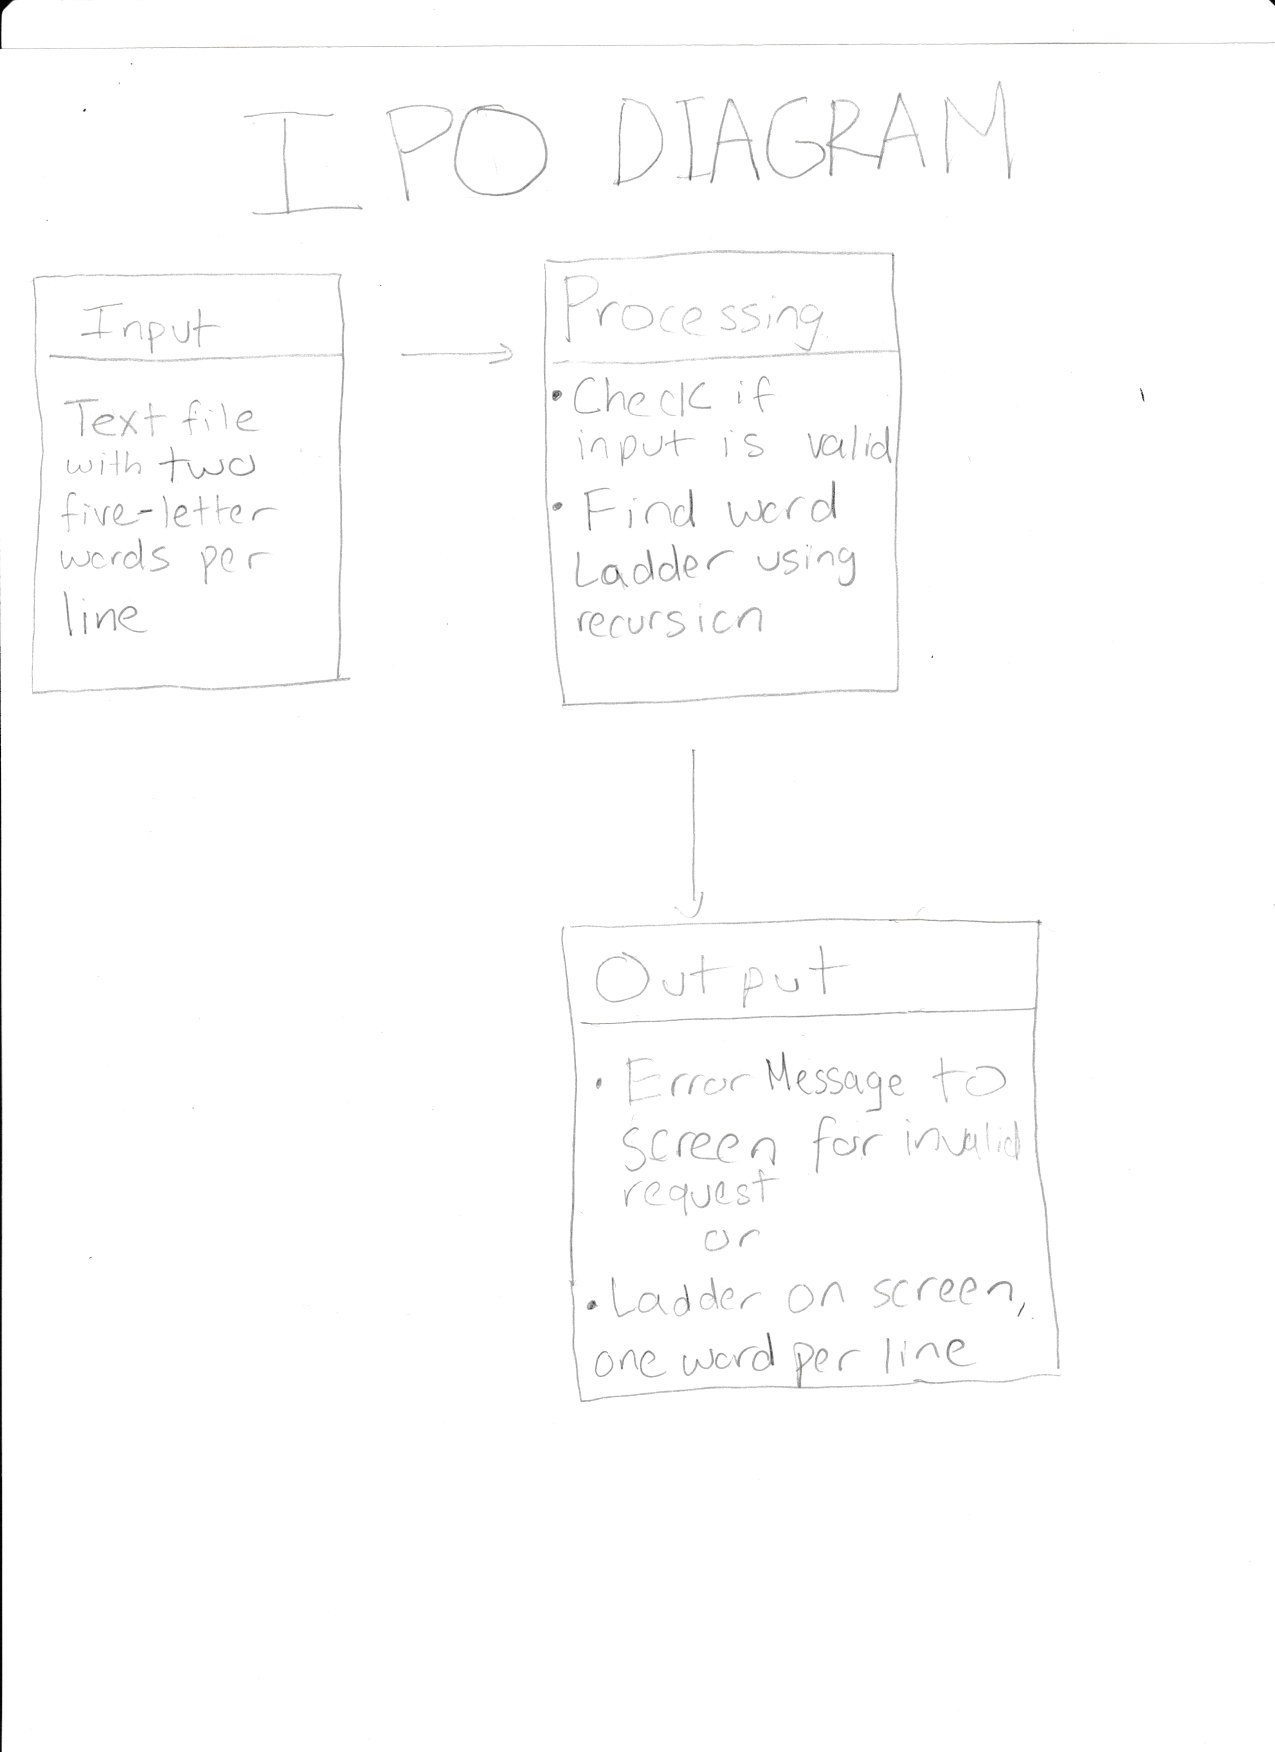 IPO DIAGRAM
Input
Text file
with two
five-letter
words per
line
Processing
• Check if
input is valid
• Find word
Ladder using
recursion
Output
• Error Message to
screen for invalid
request
or
• Ladder on screen,
one word per line